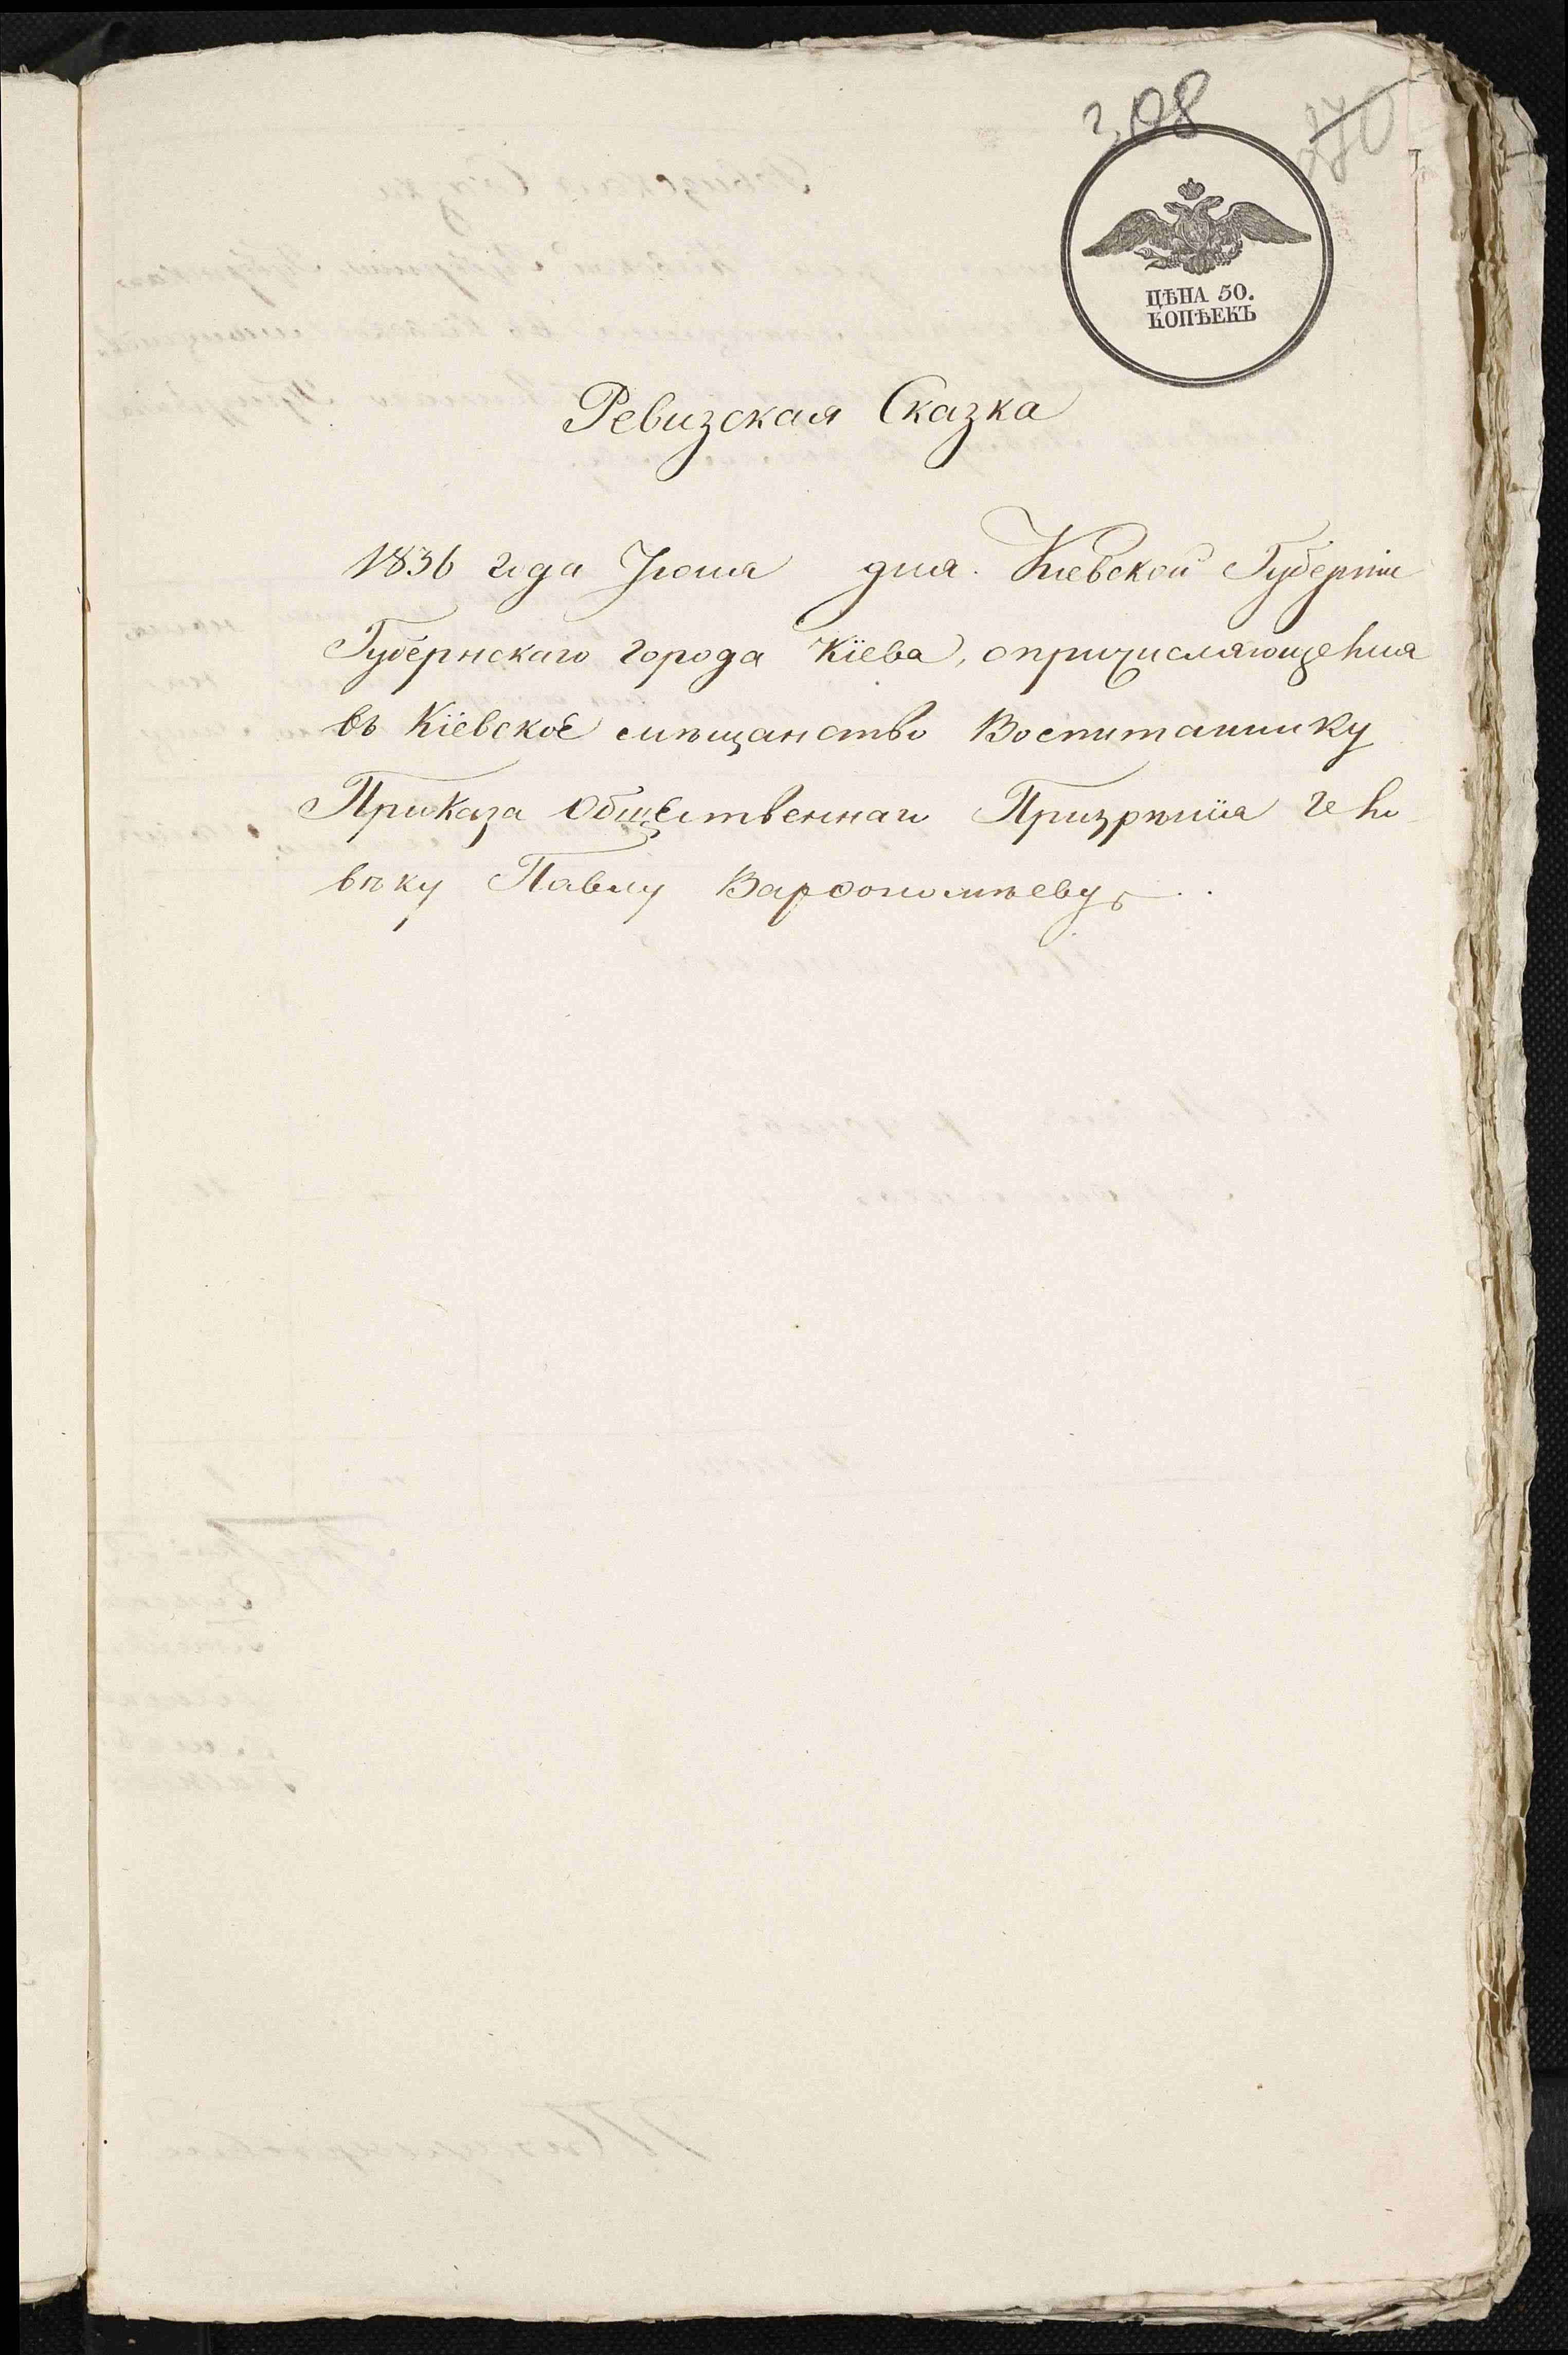 308
270
ЦѢНА 50.
КОПѢЕКЪ
Ревизская Сказка
1836 года Іюня дня. Кіевской Губерніи
Губернскаго города Кіева, опричисляющемся
въ Кіевское мѣщанство Воспитаннику
Приказа Общественнаго Призрѣнія Чело
вѣку Павлу Варѳоломѣеву